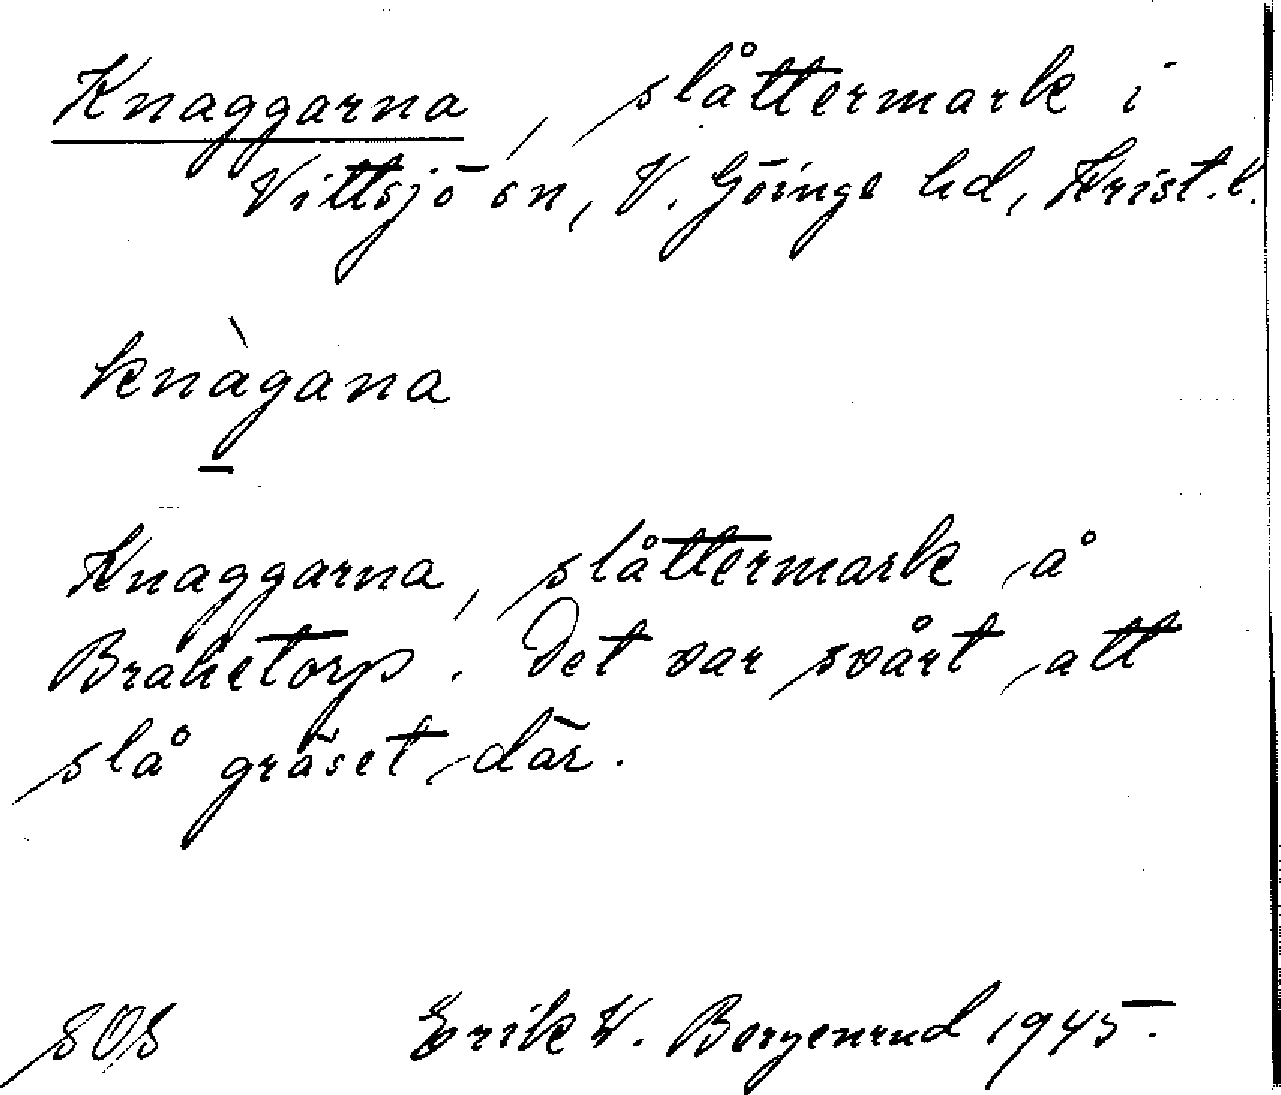 Knaggarna, slåttermark i
Vittsjö sn, V. Göinge hd, Krist. l.
knàgana
Knaggarna, slåttermark å
Brahetorp. Det var svårt att
slå gräset där.
Erik W. 1945.